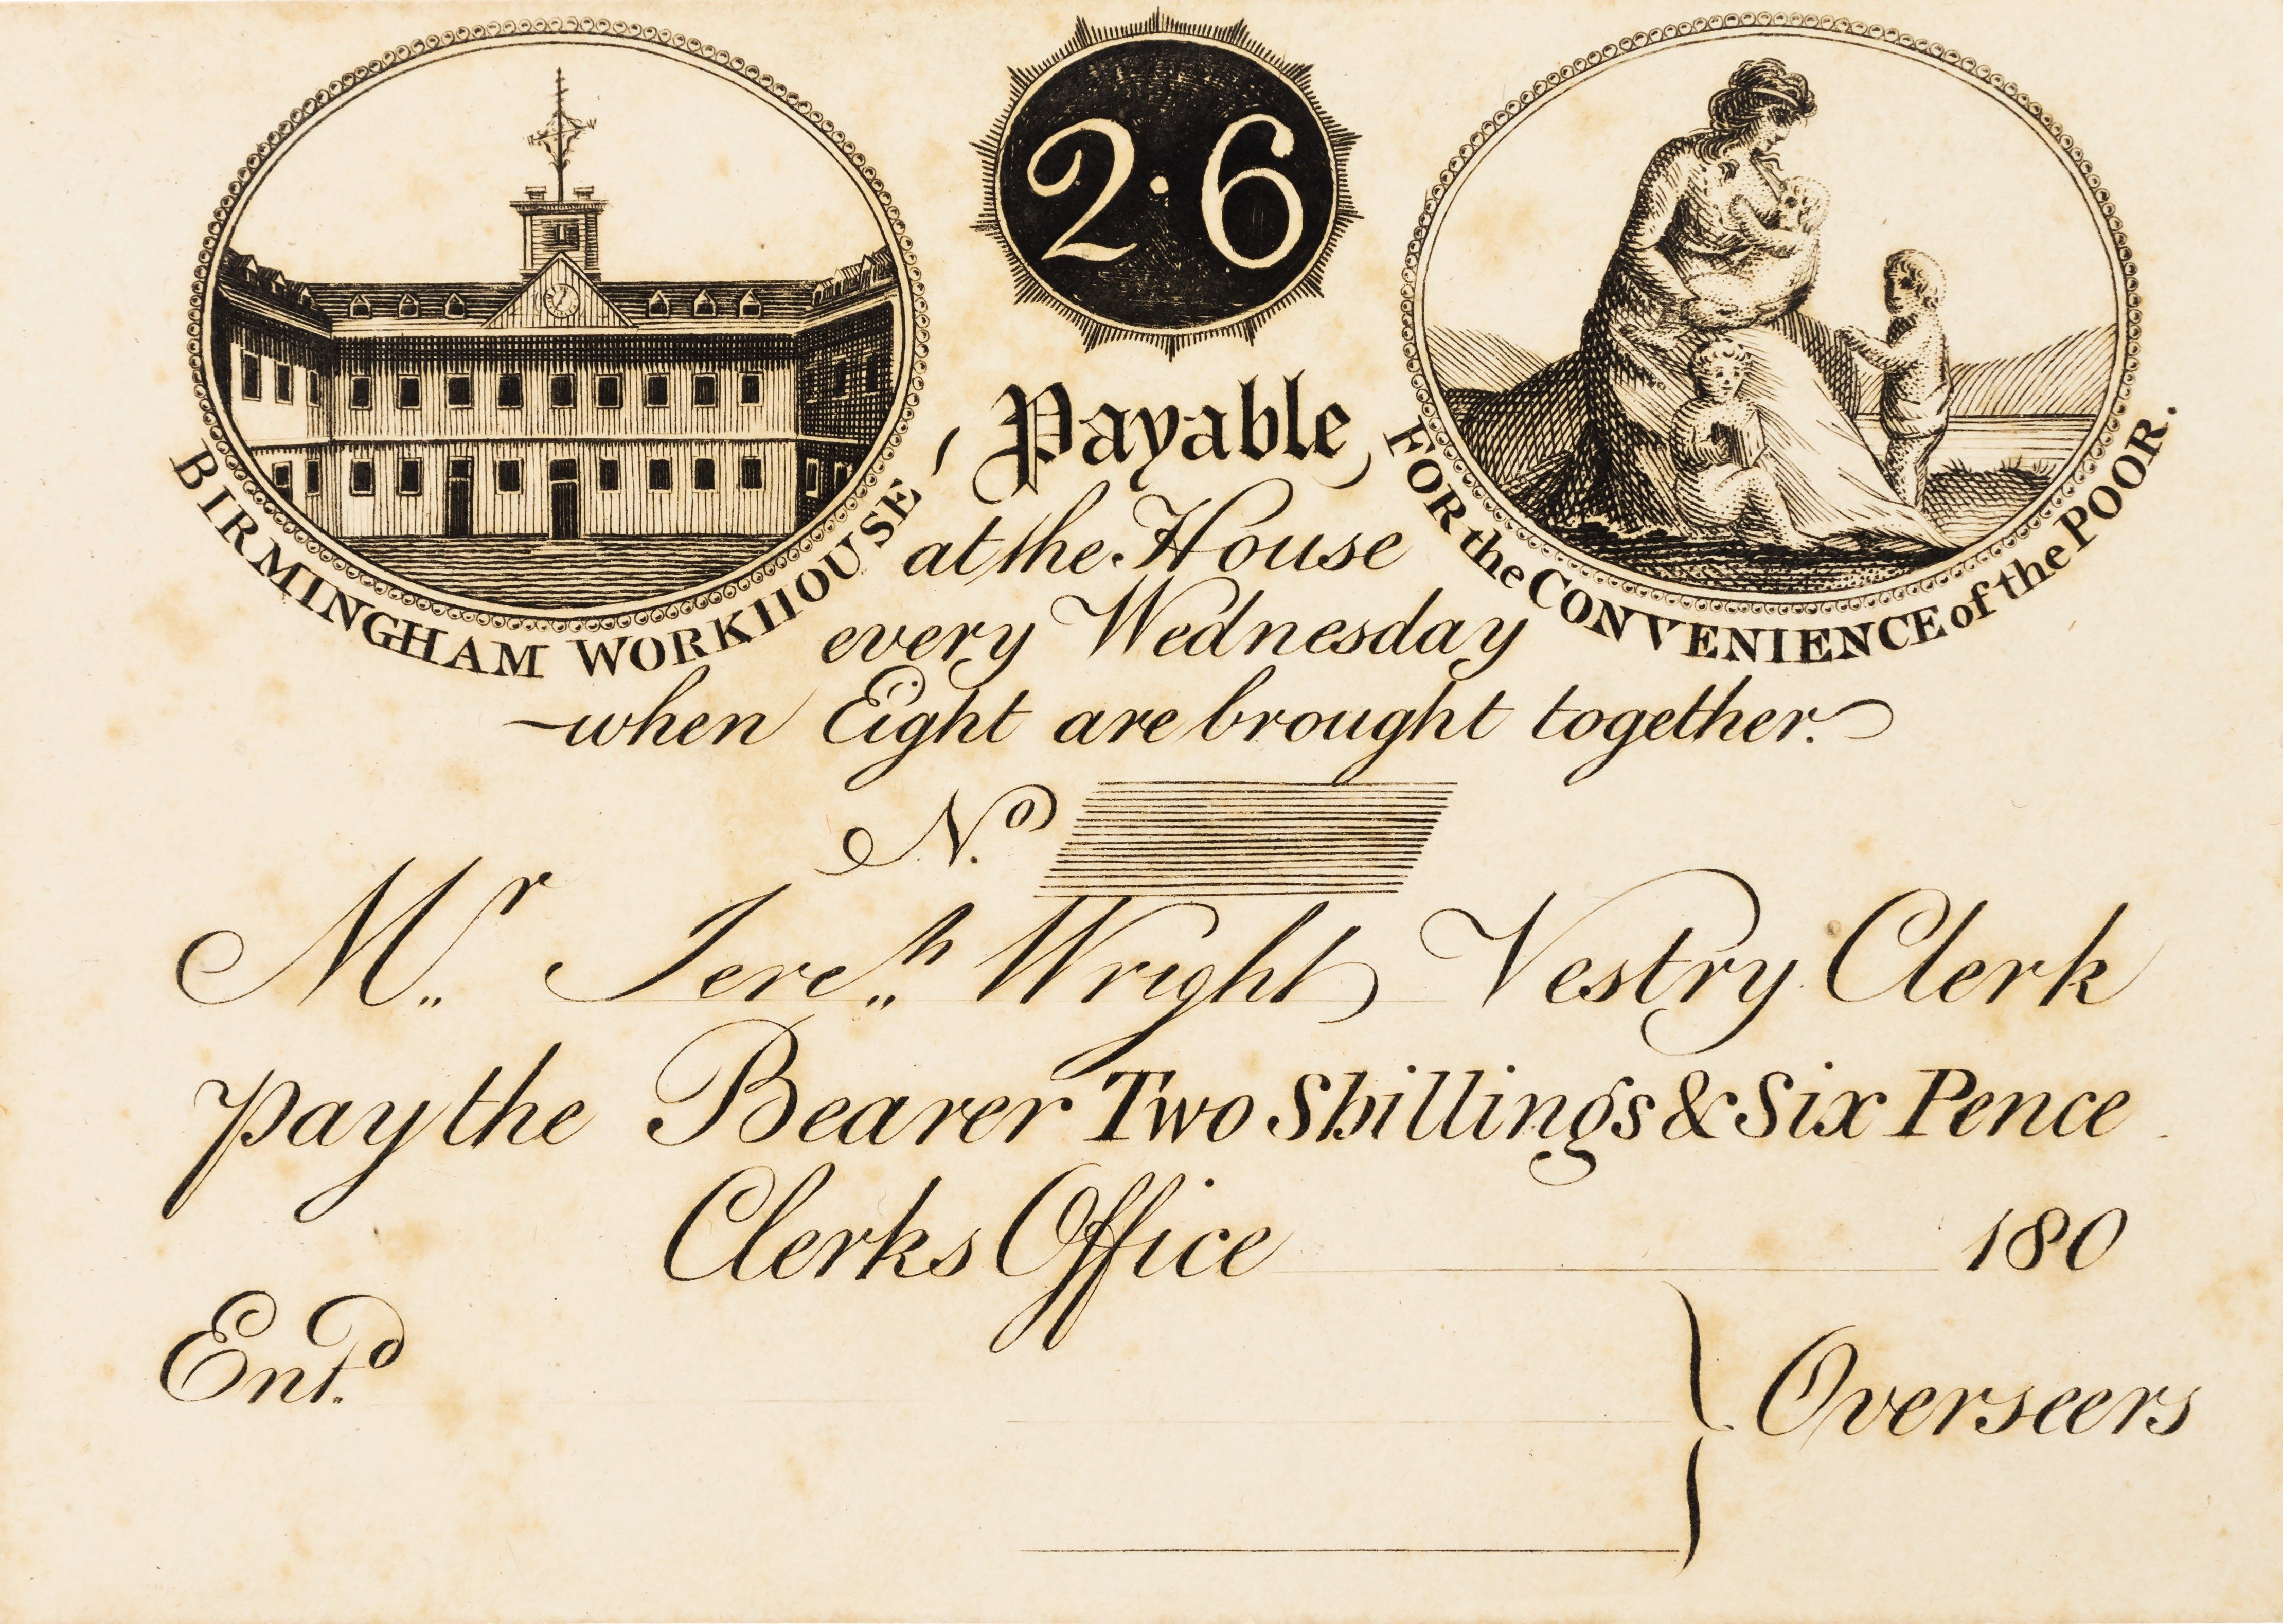 2·6
BIRMINGHAM WORKHOUSE,
FOR the CONVENIENCE of the POOR.
Payable,
at the House
every Wednesday
when Eight are brought together.
No.
Mr. Jereh. Wright Vestry Clerk
pay the Bearer Two Shillings & Six Pence
Clerks Office 180
Entd.
Overseers